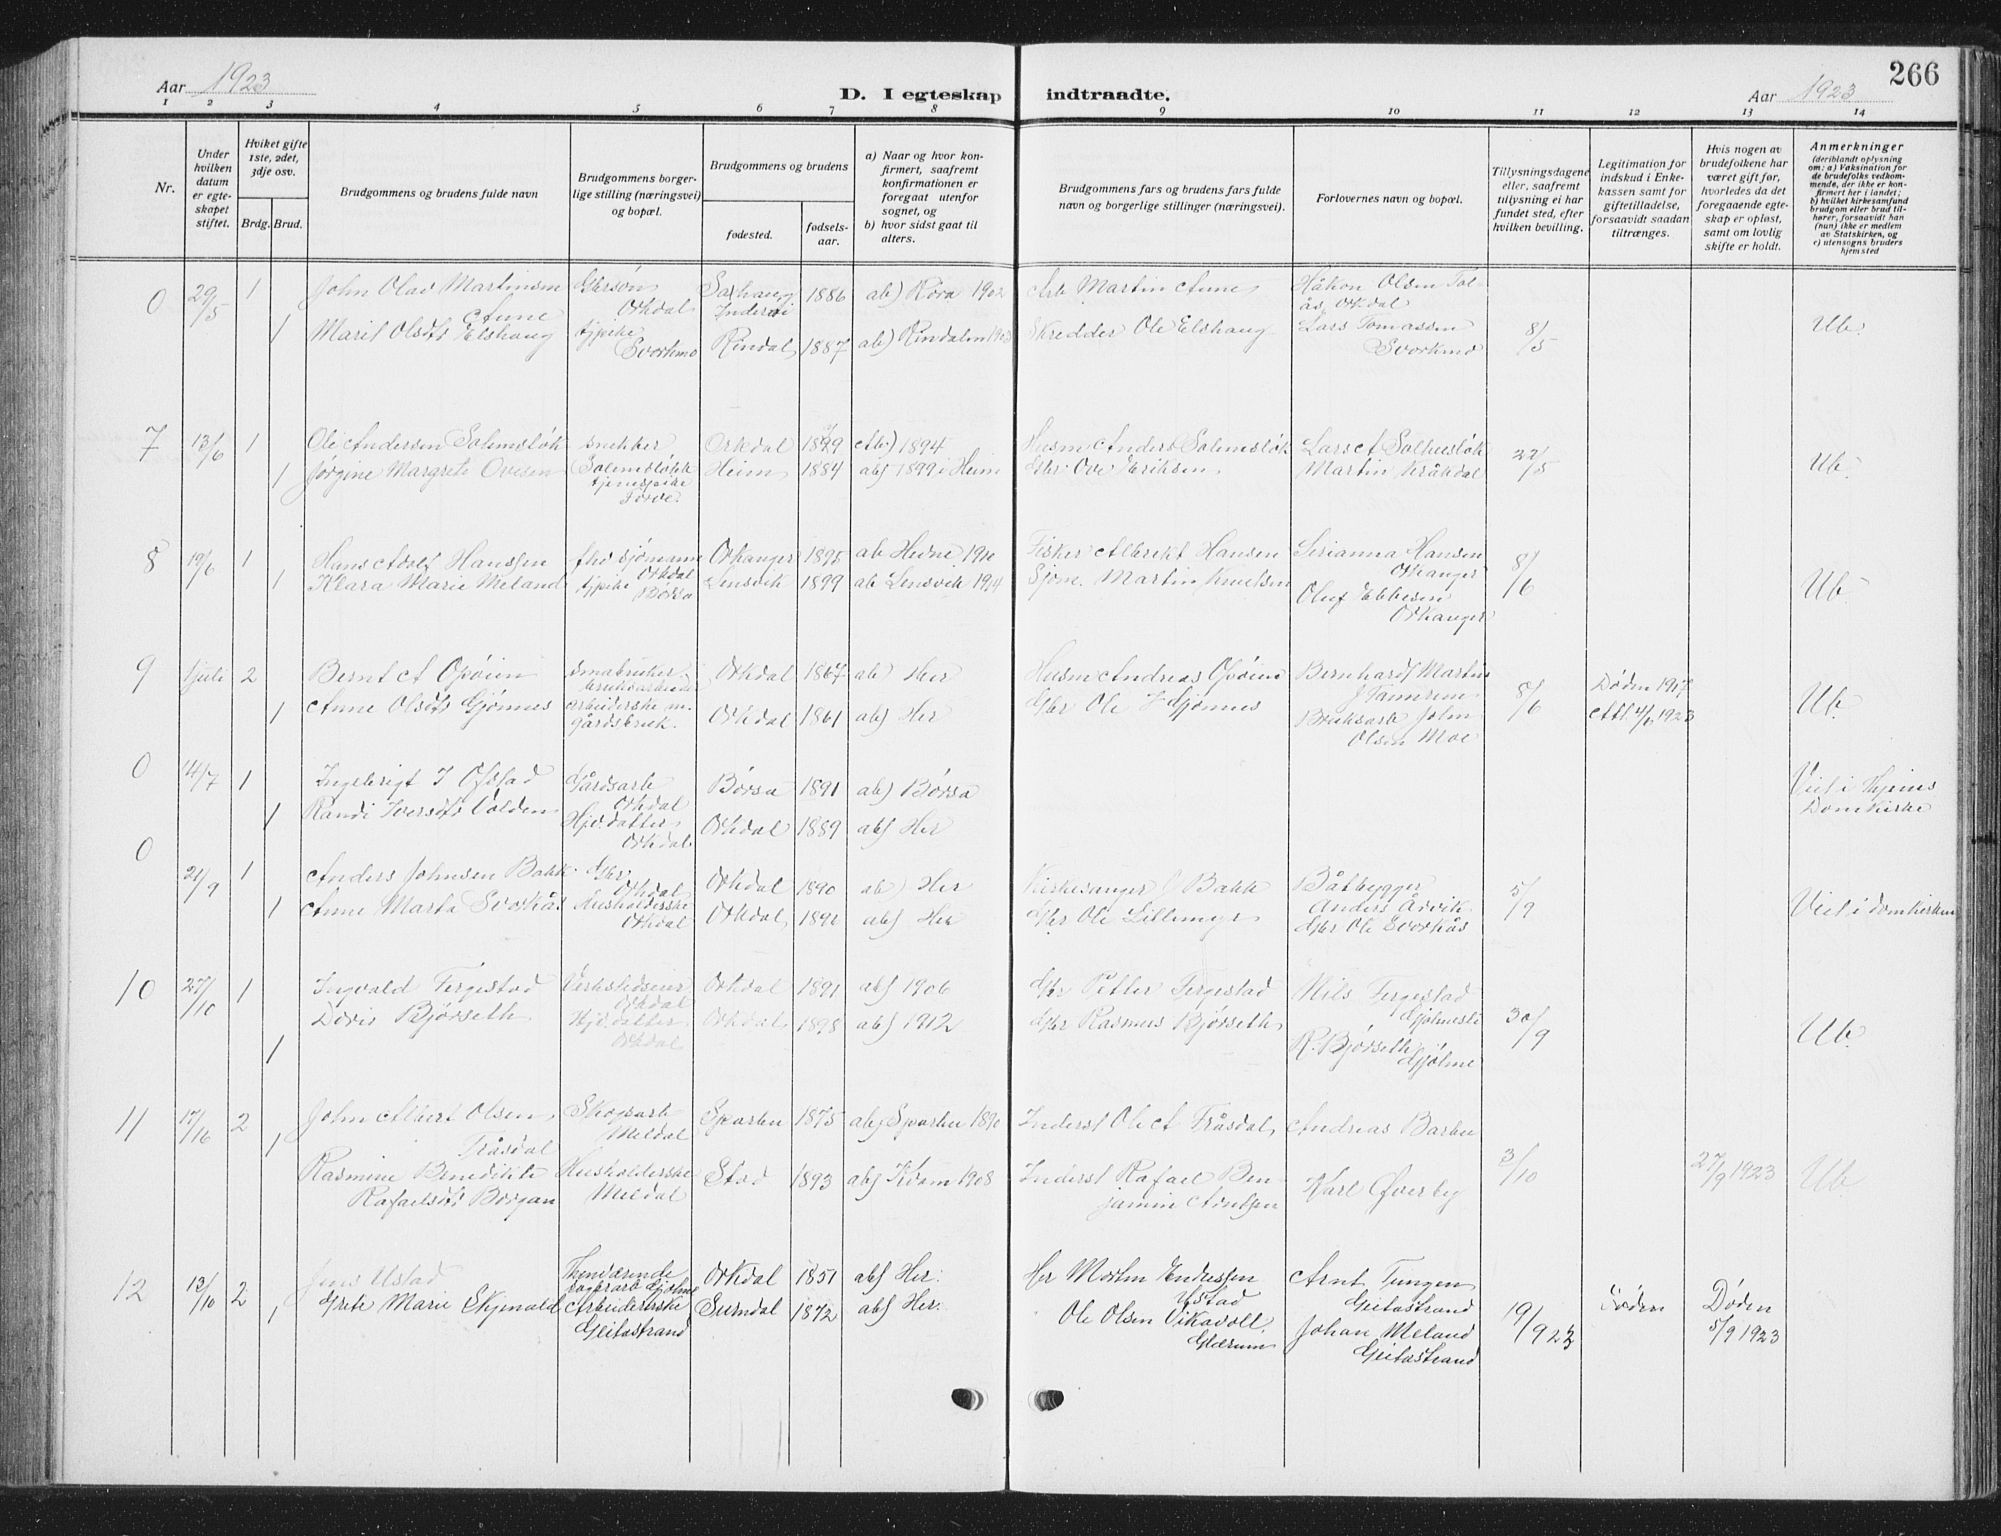 Aar 1923
D. I egteskap indtraadte.
Aar 1923
266
1 2 3 4 5 6 7 8 9 10 11 12 13 14
Nr.
Under hvilken datum er egteskapet stiftet.
Hviket gifte 1ste, 2det, 3dje osv.
Brdg. Brud.
Brudgommens og brudens fulde navn
Brudgommens borgerlige stilling (næringsvei) og bopæl.
Brudgommens og brudens
fødested.
fødselsaar.
a) Naar og hvor konfirmert, saafremt konfirmationen er foregaat utenfor sognet, og
b) hvor sidst gaat til alters.
Brudgommens fars og brudens fars fulde navn og borgerlige stillinger (næringsvei).
Forlovernes navn og bopæl.
Tillysningsdagene eller, saafremt tillysning ei har fundet sted, efter hvilken bevilling.
Legitimation for indskud i Enkekassen samt for giftetilladelse, forsaavidt saadan tiltrænges.
Hvis nogen av brudefolkene har været gift før, hvorledes da det foregaaende egteskap er opløst, samt om lovlig skifte er holdt.
Anmerkninger
(deriblandt oplysning om: a) Vaksination for de brudefolks vedkommende, der ikke er konfirmert her i landet; b) hvilket kirkesamfund brudgom eller brud tilhører, forsaavidt han (hun) ikke er medlem av Statskirken, og c) utensogns bruders hjemsted
0 29/5 1 John Olav Martinsen Aune Orkdal Saxhaug Inderøi 1886 ab) Røra 1902 Arb Martin Aune Håkon Olsen Orkdal
1 Marit Olsdt Elshaug tjpike Svorkmo Rindal 1887 ab) Rindalen Skredder Ole Elshaug Lars Tomassen Svorkmo 8/5 Ub.
7 13/6 1 Ole Andersen Solemsløk snekker Solemsløkk Orkdal ab) 1894 Husm Anders Solemsløk Lars A Solhusløk 22/5
1 Jørgine Margrete Ovesen tjenespike Heim 1884 ab) 1899 i Heim Gbr Ove Eriksen Martin Kråkdal Ub.
8 19/6 1 Hans Adolf Hanssen sjømann Orkdal Orkanger 1895 ab Hevne 1910 Fisker Albrikt Hansen Serianna Hansen Orkanger 8/6
1 Klara Marie Meland tjpike Børsa Lensvik 1899 ab Lensvik 1914 Sjøm. Martin Knutsen Oluf Ebbesen Orkanger Ub.
9 1 juli 2 Bernt A Opøien småbruker Orkdal 1867 ab) Her Husm Andreas Opøien Bernhard Martin 8/6 Døden 1917
1 Anne Olsdt Gjønnes arbeiderske m. gårdsbruk. Orkdal 1861 ab) Her Gbr Ole Gjønnes Bruksarb John Olsen Moe Att. 4/6 1923 Ub.
0 14/7 1 Ingebrigt J Ofstad Gårdsarb Orkdal Børsa 1891 ab) Børsa Viet i Domkirke
1 Randi Iversdt Volden Hjv. datter Orkdal Orkdal 1889 ab) Her
0 21/9 1 Anders Johnsen Bakk Gbr. Orkdal Orkdal 1890 ab) Her Kirkesanger J Bakk Båtbygger Anders Arvik 5/9
1 Anne Marta Svorkås Husholderske Orkdal Orkdal 1892 ab) Her Gbr Ole Lillemyr Gbr Ole Svorkås Viet i domkirken
10 27/10 1 Ingvald Fergestad Verkstedseier Orkdal Orkdal 1891 ab) 1906 Gbr Petter Fergestad Nils Fergestad 30/9
1 Doris Bjørseth Hjv. datter Orkdal Orkdal 1898 ab) 1912 Gbr Rasmus Bjørseth R. Bjørseth Gjølme Ub.
11 17/10 2 John Albert Olsen Tråsdal Skogsarb Meldal Sparbu 1875 ab) Sparbu 1890 Inderst Ole A Tråsdal Andreas Barbu 3/10
1 Rasmine Benedikte Rafaelsdt Borgan Husholderske Meldal Stod 1893 ab) Kvam 1908 Inderst Rafael Benjamin Karl Øverby 27/9 1923 Ub
12 13/10 2 Jens Ustad Gjølme Orkdal 1851 ab) Her: Morten Endressen Ystad Arnt Tungen Geitastrand
1 Grete Marie Skjenald Arbeiderske Geitastrand Surndal 1872 ab) Her: Ole Olsen Vikavoll Glærum Johan Meland Geitastrand 19/9 23 Døden Døden 5/9 1923